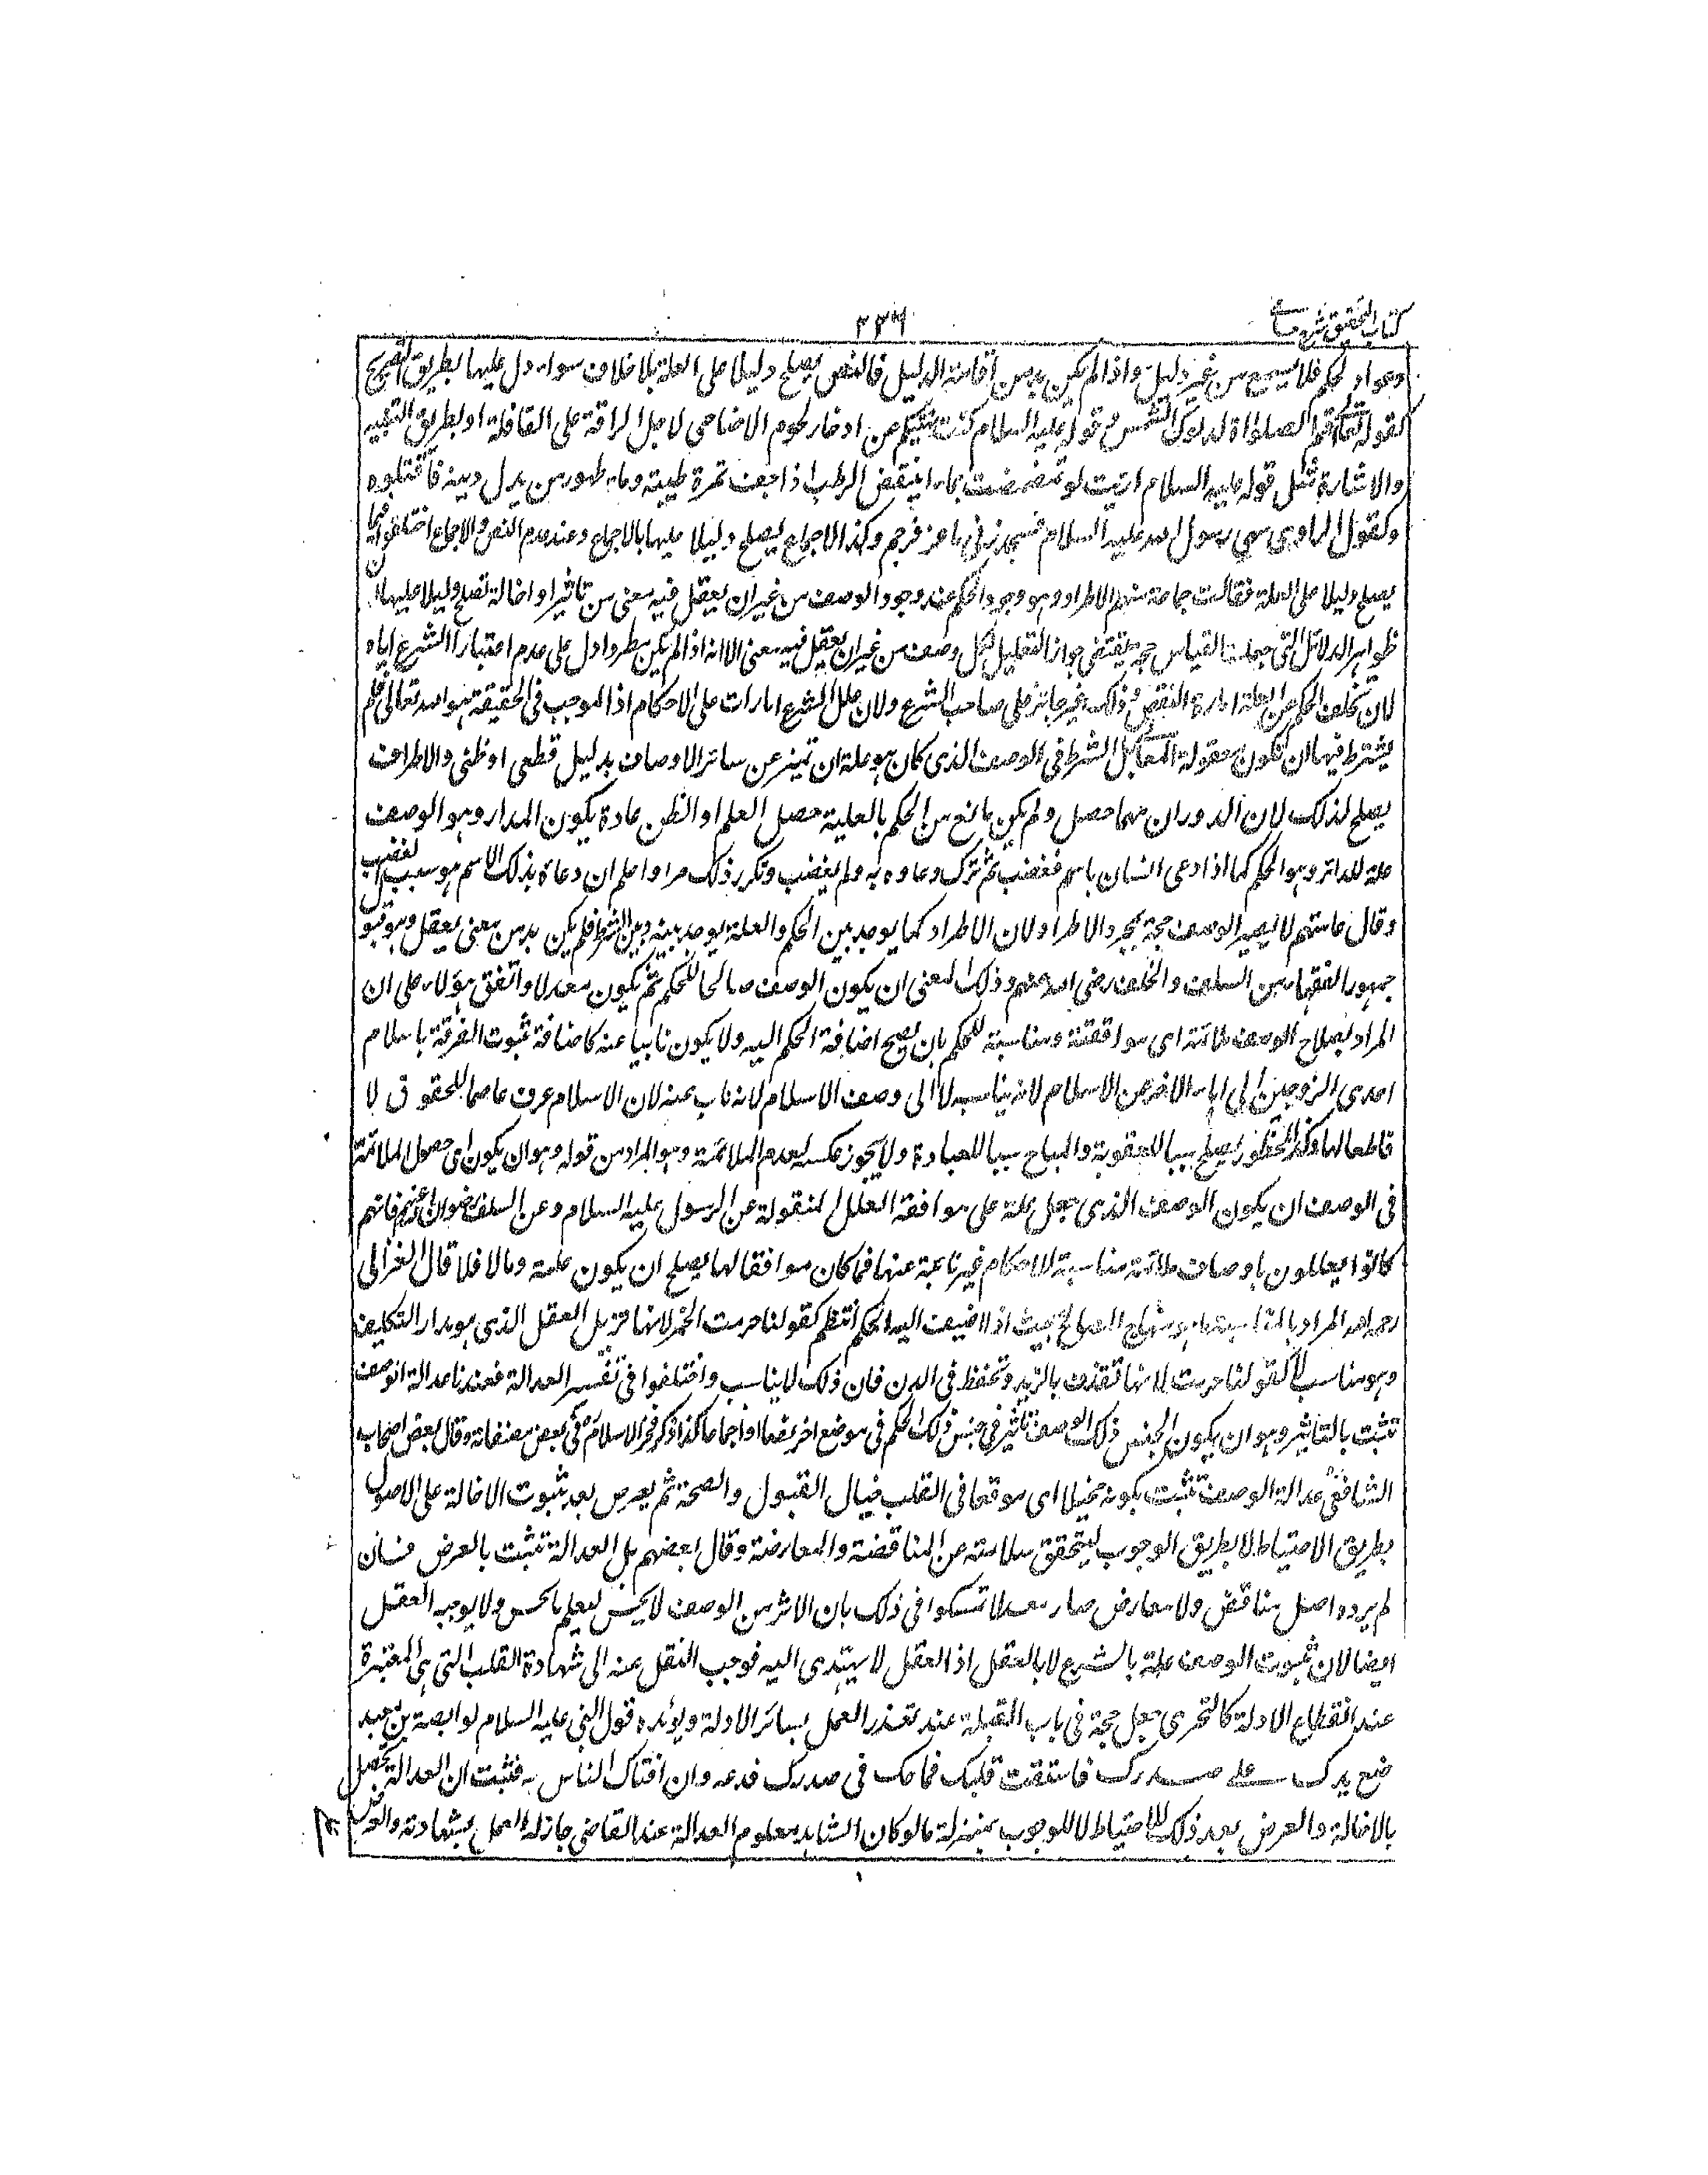 كتاب التحقيق شرح حسامى
٢٣٦
دعوا و لحكم فلا يسمع من غير دليل واذا لم يكن بد من اقامة الدليل فالنص يصلح دليلا على العلة بلا خلاف سواء دل عليها بطريق التصريح
كقوله تعالى اقم الصلوٰة لدلوك الشمس و قوله عليه السلام كنت نهيتكم عن ادخار لحوم الاضاحى لاجل الرافة على القافلة او بطريق التنبيه
والاشارة مثل قوله عليه السلام ارأيت لو تمضمضت بماء اينقض الرطب اذا جف تمرة طيبة وماء طهور من بدل دينه فاقتلوه
وكقول الراوى سهى رسول الله عليه السلام فسجد زنى ماعز فرجم وكذا الاجماع يصلح دليلا عليها بالاجماع وعند عدم النص والاجماع اختلفوا فيما
يصلح دليلا على العلة فقالت جماعة منهم الاطراد وهو وجود الحكم عند وجود الوصف من غير ان يعقل فيه معنى من تاثير او اخالة تصلح دليلا عليها لان
ظواهر الدلائل التى جعلت القياس حجة يقتضى جواز التعليل بكل وصف من غير ان يعقل فيه معنى الا انه اذا لم يكن مطردا دل على عدم اعتبار الشرع اياه
لان تخلف الحكم عن العلة امارة النقض و ذلك غير جائز على صاحب الشرع ولان علل الشرع امارات على الاحكام اذ الموجب فى الحقيقة هو الله تعالى فلم
يشترط فيها ان تكون معقولة المعنى بل الشرط فى الوصف الذى كان هو علة ان تميز عن سائر الاوصاف بدليل قطعى او ظنى والاطراد
يصلح لذلك لان الدوران مهما حصل ولم يكن مانع من الحكم بالعلية حصل العلم او الظن عادة بكون المدار وهو الوصف
علة للدائر وهو الحكم كما اذا دعى انسان باسم فغضب ثم ترك دعاوه به ولم يغضب وتكرر ذلك مرارا علم ان دعاه بذلك الاسم هو سبب الغضب
وقال عامتهم لا يصير الوصف حجة بمجرد الاطراد لان الاطراد كما يوجد بين الحكم والعلة يوجد بينه وبين الشرط فلم يكن بد من معنى يعقل وهو قول
جمهور الفقهاء من السلف والخلف رضى الله عنهم وذلك المعنى ان يكون الوصف صالحا للحكم ثم يكون معدلا واتفق هؤلاء على ان
المراد بصلاح الوصف ملائمته اى موافقته ومناسبته للحكم بان يصح اضافة الحكم اليه ولا يكون نابيا عنه كاضافة ثبوت الفرقة باسلام
احدى الزوجين الى اباء الاخر عن الاسلام لانه يناسبه لا الى وصف الاسلام لانه ناب عنه لان الاسلام عرف عاصما للحقوق لا
قاطعا لها وكذا المحظور يصلح سببا للعقوبة والمباح سببا للعبادة ولا يجوز عكسه لعدم الملائمة وهو المراد من قوله وهو ان يكون اى حصول الملائمة
فى الوصف ان يكون الوصف الذى جعل علة على موافقة العلل المنقولة عن الرسول عليه السلام وعن السلف رضوان الله عنهم فانهم
كانوا يعللون باوصاف ملائمة مناسبة للاحكام غير نائية عنها فما كان موافقا لها يصلح ان يكون علة ومالا فلا قال الغزالى
رحمه الله المراد بالمناسب ما هو على منهاج المصالح بحيث اذا اضيف اليه الحكم انتظم كقولنا حرمت الخمر لانها تزيل العقل الذى هو مدار التكليف
وهو مناسب لا كقولنا حرمت لانها تقذف بالزبد وتحفظ فى الدن فان ذلك لا يناسب واختلفوا فى تفسير العدالة فعندنا عدالة الوصف
تثبت بالتاثير وهو ان يكون لجنس ذلك الوصف تاثير فى جنس ذلك الحكم فى موضع اخر نصا او اجماعا كذا ذكر فخر الاسلام فى بعض مصنفاته وقال بعض اصحاب
الشافعى عدالة الوصف تثبت بكونه مخيلا اى موقعا فى القلب خيال القبول والصحة ثم يعرض بعد ثبوت الاخالة على الاصول
بطريق الاحتياط لا بطريق الوجوب ليتحقق سلامته عن المناقضة والمعارضة وقال بعضهم بل العدالة تثبت بالعرض فان
لم يرده اصل مناقض ولا معارض صار معدلا تمسكوا فى ذلك بان الاثر من الوصف لا يحس ليعلم بالحس ولا يوجبه العقل
ايضا لان ثبوت الوصف علة بالشرع لا بالعقل اذ العقل لا يهتدى اليه فوجب النقل عنه الى شهادة القلب التى هى المعتبرة
عند انقطاع الادلة كالتحرى جعل حجة فى باب القبلة عند تعذر العمل بسائر الادلة ويؤيده قول النبى عليه السلام لوابصة بن معبد
ضع يدك على صدرك فاستفت قلبك فما حك فى صدرك فدعه وان افتاك الناس به فثبت ان العدالة تحصل
بالاخالة والعرض بعد ذلك للاحتياط لا للوجوب بمنزلة مالو كان الشاهد معلوم العدالة عند القاضى جاز له العمل بشهادته والعرض